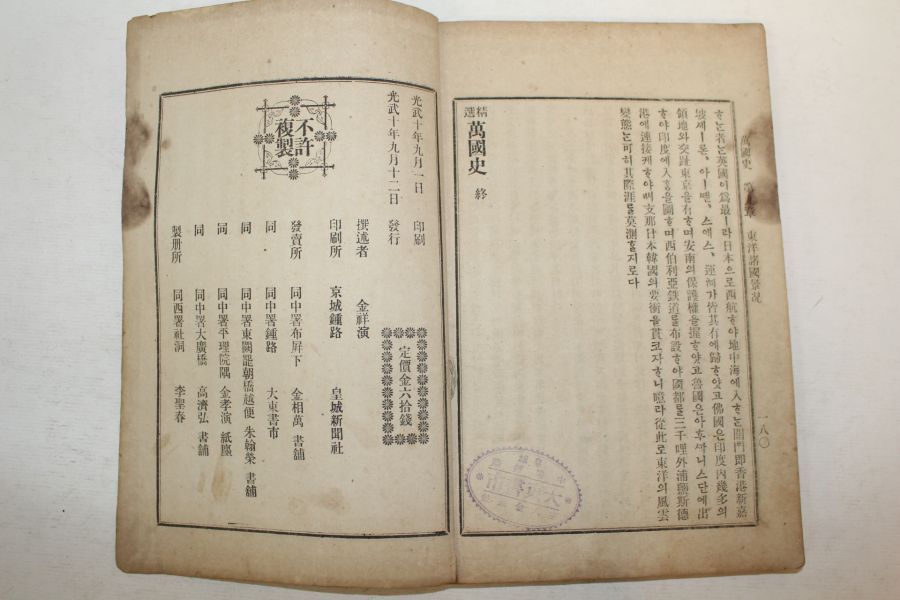 萬國史 東洋諸國景況 一八〇
ᄒᆞᄂᆞᆫ者ᄂᆞᆫ英國이爲最ㅣ라日本으로西航ᄒᆞ야地中海에入ᄒᆞᄂᆞᆫ關門卽香港新嘉
坡세ㅣ론、아ㅣ덴、스에스、運河가皆其有에歸ᄒᆞ얏고佛國은印度內幾多의
領地와交趾東京을有ᄒᆞ며安南의保護權을握ᄒᆞ얏고魯國은아후ᅀᅡ니스단에出
ᄒᆞ야印度에入흠을圖ᄒᆞ며西伯利亞鐵道를布設ᄒᆞ야國都를三千哩外浦鹽斯德
港에連接케ᄒᆞ야ᄡᅥ支那日本韓國의要衝을貫코자ᄒᆞ니噫라從此로東洋의風雲
變態ᄂᆞᆫ可히其際涯를莫測ᄒᆞᆯ지로다
精選 萬國史 終
光武十年九月一日 印刷
光武十年九月十二日 發行
不許複製
定價金六拾錢
撰述者 金祥演
印刷所 京城鍾路 皇城新聞社
發賣所 同中署布屛下 金相萬 書舖
同 同中署鍾路 大東書市
同 同中署東闕罷朝橋越便 朱翰榮 書舖
同 同中署平理院隅 金孝演 紙廛
同 同中署大廣橋 高濟弘 書舖
製册所 同西署社洞 李聖春